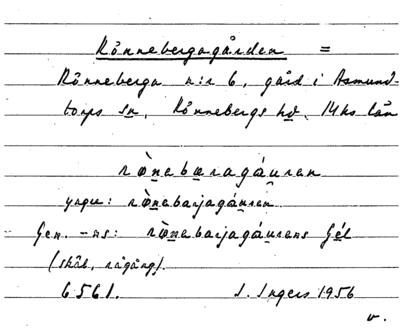 Rönnebergagården =
Rönneberga n:r 6, gård i Asmund-
torps sn, Rönnebergs hd, Mhs län
rò̱nebæragáuren
yngre: rò̱nebarjagáuren
Gen. -ns: rò̱nebarjagáurens
(skåb, rågång).
6561. I. Ingers 1956
v.